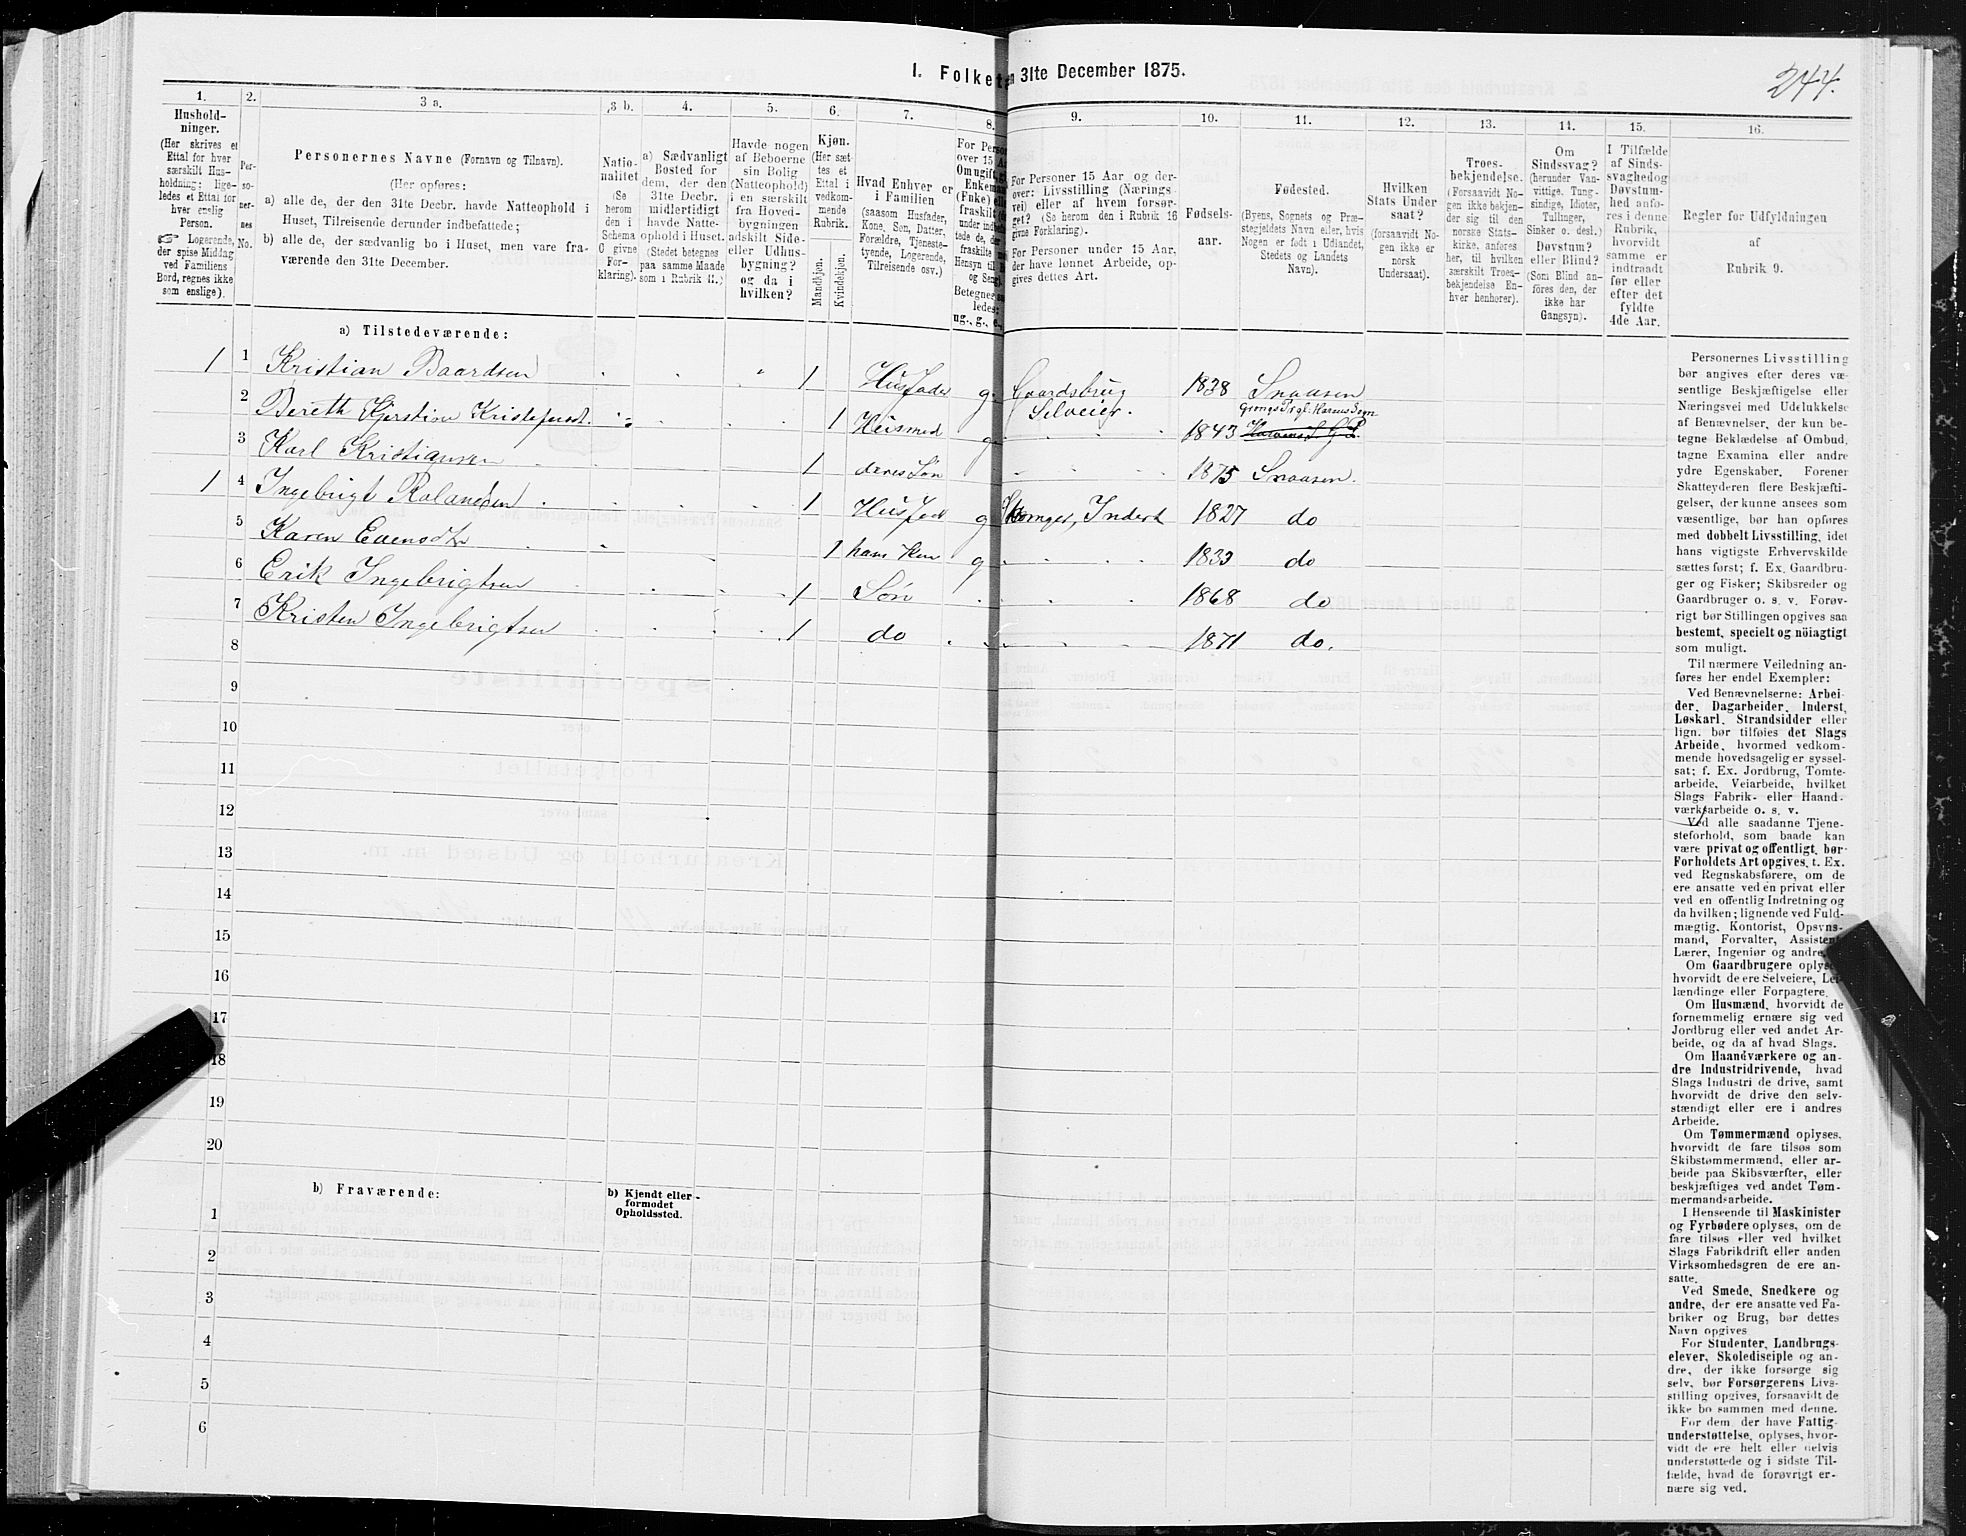 I. Folket n 31te December 1875.
244.
1.
Hushold-
ninger.
(Her skrives et
Ettal for hver
særskilt Hus-
holdning; lige-
ledes et Ettal for
hver enslig
Person.
☞ Logerende,
der spise Middag
ved Familiens
Bord, regnes ikke
som enslige).
2.
Per-
so-
ner-
nes
No.
3 a.
Personernes Navne (Fornavn og Tilnavn).
(Her opføres:
a) alle de, der den 31te Decbr. havde Natteophold i
Huset, Tilreisende derunder indbefattede;
b) alle de, der sædvanlig bo i Huset, men vare fra-
værende den 31te December.
3 b.
Natio-
nalitet
(Se
herom
den i
Schema
C givne
For-
klaring).
4.
a) Sædvanligt
Bosted for
dem, der den
31te Decbr.
midlertidigt
havde Natte-
ophold i Huset.
(Stedet betegnes
paa samme Maade
som i Rubrik 11.)
5.
Havde nogen
af Beboerne
sin Bolig
(Natteophold)
i en særskilt
fra Hoved-
bygningen
adskilt Side-
eller Udhus-
bygning?
og da i
hvilken?
6.
Kjøn.
(Her sæt-
tes et
Ettal i
vedkom-
mende
Rubrik.
Mandkjøn.
Kvindekjøn.
7.
Hvad Enhver er
i Familien
(saasom Husfader,
Kone, Søn, Datter,
Forældre, Tjeneste-
tyende, Logerende,
Tilreisende osv.)
8.
For Perso
over 15 Aa
Om ugift, gi
Enkeman
(Fnke) elle
fraskilt (de
under indbe
tede de, der
fraskilte m
Hensyn til B
og Seng).
Betegnes saa
ledes:
ug., g., e.,
9.
For Personer 15 Aar og der-
over: Livsstilling (Nærings-
vei) eller af hvem forsør-
get? (Se herom den i Rubrik 16
givne Forklaring).
For Personer under 15 Aar,
der have lønnet Arbeide, op-
gives dettes Art.
10.
Fødsels-
aar.
11.
Fødested.
(Byens, Sognets og Præ-
stegjeldets Navn eller, hvis
Nogen er født i Udlandet,
Stedets og Landets
Navn).
12.
Hvilken
Stats Under
saat?
(forsaavidt No-
gen ikke er
norsk
Undersaat).
13.
Troes-
bekjendelse.
(Forsaavidt No-
gen ikke bekjen-
der sig til den
norske Stats-
kirke, anføres
her, til hvilken
særskilt Troes-
bekjendelse En-
hver henhører).
14.
Om
Sindssvag?
(herunder Van-
vittige, Tung-
sindige, Idioter,
Tullinger,
Sinker o. desl.)
Døvstum?
eller Blind?
(Som Blind an-
føres den, der
ikke har
Gangsyn).
15.
I Tilfælde
af Sinds-
svaghed og
Døvstum-
hed anfø-
res i denne
Rubrik,
hvorvidt
samme er
indtraadt
før eller
efter det
fyldte
4de Aar.
16.
Regler for Udfyldningen
af
Rubrik 9.
a) Tilstedeværende:
1 1 Kristian Baardsen 1 Husfader g. Gaardsbrug Selveier. 1838 Snaasen
2 Bereth Kjerstine Kristofersdt. 1 Husmod g 1843 Grongs Prgl. Harans Sogn
3 Karl Kristiansen 1 deres Søn 1875 Snaasen.
1 4 Ingebrigt Rolandsen 1 Husfad g Inderst 1827 do
5 Karen Evensdtr 1 hans Kon g 1833 do
6 Erik Ingebrigtsen 1 Søn 1868 do
7 Kristen Ingebrigtsen 1 do 1871 do.
8
9
10
11
12
13
14
15
16
17
18
19
20
b) Fraværende:
b) Kjendt eller
formodet
Opholdssted.
1
2
3
4
5
6
Personernes Livsstilling
bør angives efter deres væ-
sentlige Beskjæftigelse eller
Næringsvei med Udelukkelse
af Benævnelser, der kun be-
tegne Beklædelse af Ombud,
tagne Examina eller andre
ydre Egenskaber. Forener
Skatteyderen flere Beskjæfti-
gelser, der kunne ansees som
væsentlige, bør han opføres
med dobbelt Livsstilling, idet
hans vigtigste Erhvervskilde
sættes først; f. Ex. Gaardbru-
ger og Fisker; Skibsreder og
Gaardbruger o. s. v. Forøv-
rigt bør Stillingen opgives saa
bestemt, specielt og nöiagtigt
som muligt.
Til nærmere Veiledning an-
føres her endel Exempler:
Ved Benævnelserne: Arbei-
der, Dagarbeider, Inderst,
Løskarl, Strandsidder eller
lign. bør tilføies det Slags
Arbeide, hvormed vedkom-
mende hovedsagelig er syssel-
sat; f. Ex. Jordbrug, Tomte-
arbeide, Veiarbeide, hvilket
Slags Fabrik- eller Haand-
værksarbeide o. s. v.
Ved alle saadanne Tjene-
steforhold, som baade kan
være privat og offentligt, bør
Forholdets Art opgives, t. Ex.
ved Regnskabsførere, om de
ere ansatte ved en privat eller
ved en offentlig Indretning og
da hvilken; lignende ved Fuld-
mægtig, Kontorist, Opsyns-
mand, Forvalter, Assistent,
Lærer, Ingeniør og andre.
Om Gaardbrugere oplyses,
hvorvidt de ere Selveiere, Lei-
lændinge eller Forpagtere.
Om Husmænd, hvorvidt de
fornemmelig ernære sig ved
Jordbrug eller ved andet Ar-
beide, og da af hvad Slags.
Om Haandværkere og an-
dre Industridrivende, hvad
Slags Industri de drive, samt
hvorvidt de drive den selv-
stændigt eller ere i andres
Arbeide.
Om Tømmermænd oplyses,
hvorvidt de fare tilsøs som
Skibstømmermænd, eller ar-
beide paa Skibsværfter, eller
beskjæftiges ved andet Tøm-
mermandsarbeide.
I Henseende til Maskinister
og Fyrbødere oplyses, om de
fare tilsøs eller ved hvilket
Slags Fabrikdrift eller anden
Virksomhedsgren de ere an-
satte.
Ved Smede, Snedkere og
andre, der ere ansatte ved Fa-
briker og Brug, bør dettes
Navn opgives
For Studenter, Landbrugs-
elever, Skoledisciple og an-
dre, der ikke forsørge sig
selv, bør Forsørgerens Livs-
stilling opgives, forsaavidt de
ikke bo sammen med denne.
For dem, der have Fattig-
understøttelse, oplyses, hvor-
vidt de ere helt eller delvis
understøttede og i sidste Til-
fælde, hvad de forøvrigt er-
nære sig ved.